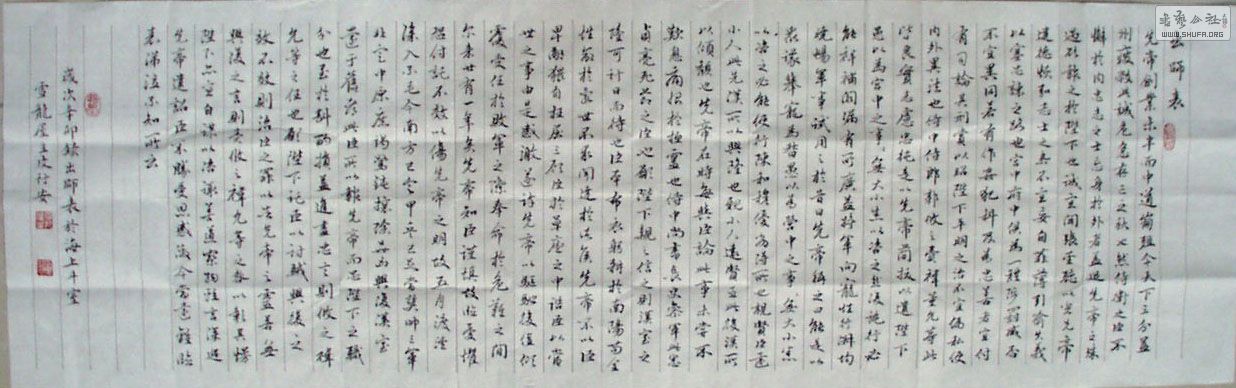 出師表
先帝創業未半而中道崩殂今天下三分益
州疲敝此誠危急存亡之秋也然侍衛之臣不
懈於內忠志之士忘身於外者蓋追先帝之殊
遇欲報之於陛下也誠宜開張聖聽以光先帝
遺德恢弘志士之氣不宜妄自菲薄引喻失義
以塞忠諫之路也宮中府中俱為一體陟罰臧否
不宜異同若有作奸犯科及為忠善者宜付
有司論其刑賞以昭陛下平明之治不宜偏私使
內外異法也侍中侍郎郭攸之費禕董允等此
皆良實志慮忠純是以先帝簡拔以遺陛下
愚以為宮中之事事無大小悉以咨之然後施行必
能裨補闕漏有所廣益將軍向寵性行淑均
曉暢軍事試用之於昔日先帝稱之曰能是以
眾議舉寵為督愚以為營中之事事無大小悉
以咨之必能使行陳和穆優劣得所也親賢臣遠
小人此先漢所以興隆也親小人遠賢臣此後漢所
以傾頹也先帝在時每與臣論此事未嘗不
歎息痛恨於桓靈也侍中尚書長史參軍此悉
貞亮死節之臣也願陛下親之信之則漢室之
隆可計日而待也臣本布衣躬耕於南陽苟全
性命於亂世不求聞達於諸侯先帝不以臣
卑鄙猥自枉屈三顧臣於草廬之中諮臣以當
世之事由是感激遂許先帝以驅馳後值傾
覆受任於敗軍之際奉命於危難之間
尔来廿有一年矣先帝知臣謹慎故臨憂懼
恐付託不效以傷先帝之明故五月渡瀘
深入不毛今南方已定甲兵已足當獎帥三軍
北定中原庶竭駑鈍攘除凶興復漢室
還于舊都此臣所以報先帝而忠陛下之職
分也至於斟酌損益進盡忠言則攸之禕
允等之任也願陛下託臣以討賊興復之
效不效則治臣之罪以告先帝之靈若無
興復之言則責攸之禕允等之咎以彰其慢
陛下亦宜自謀以諮諏善道察納雅言深追
先帝遺詔臣不勝受恩感激今當遠離臨
表涕泣不知所云
歲次辛卯錄出師表於海上斗室
雪龍廬主
書藝公社
WWW.SHUFA.ORG